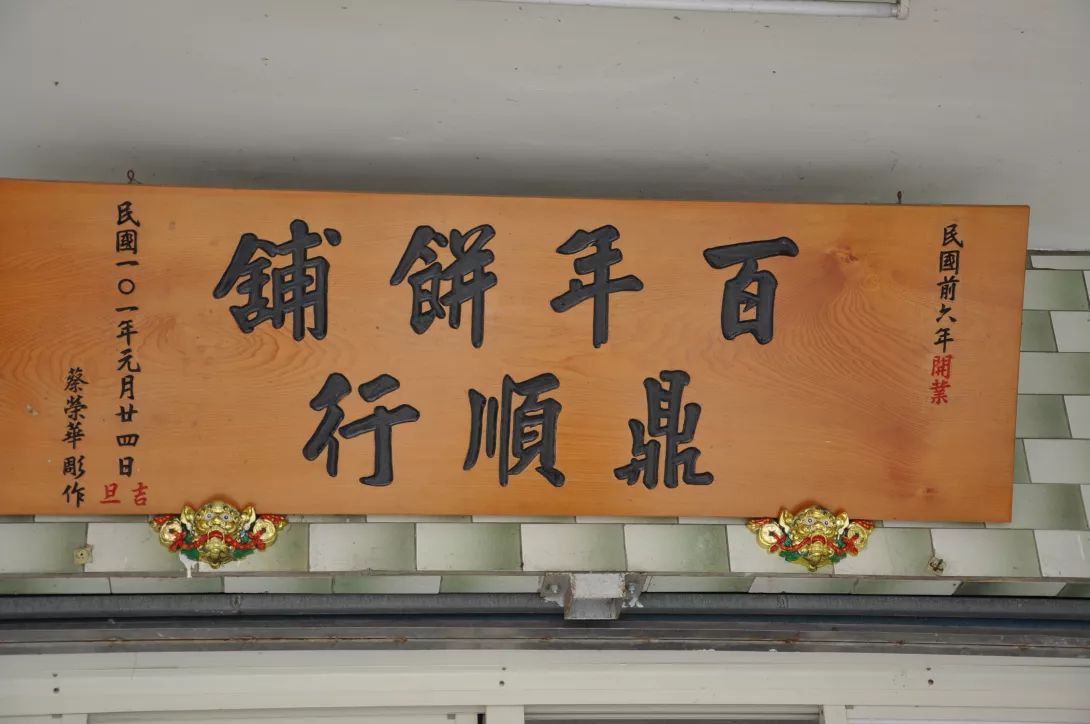 民國前六年開業
百年餅舖
鼎順行
民國一〇一年元月廿四日吉旦
蔡榮華彫作